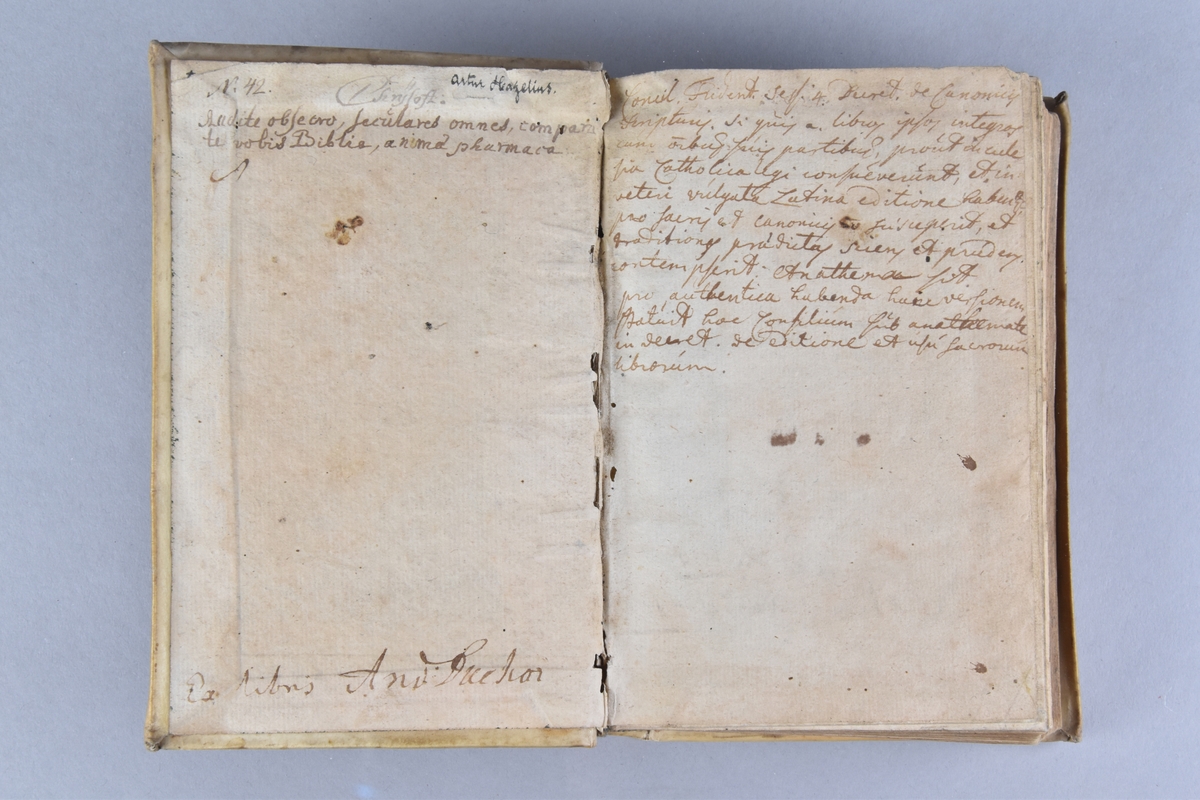 N. 42.
Artur Hazelius.
Audite obsecro, seculares omnes, compara
te vobis Biblia, animæ pharmaca
Ex libris And
Concil. Trident. Sess. 4. Decret. de Canonicis
Scripturis. Si quis a. libros ipsos integros
cum oibus suis partibus, prout in eccle
sia Catholica legi consueverunt, et in
veteri vulgata Latina editione habentur
pro sacris et canonicis susceperit, et
traditiones prædictas sciens et prudens
contempserit: Anathema sit
pro authentica habenda hanc versionem
statuit hoc Consilium sub anathemate
in decret. de editione et usu sacrorum
librorum.